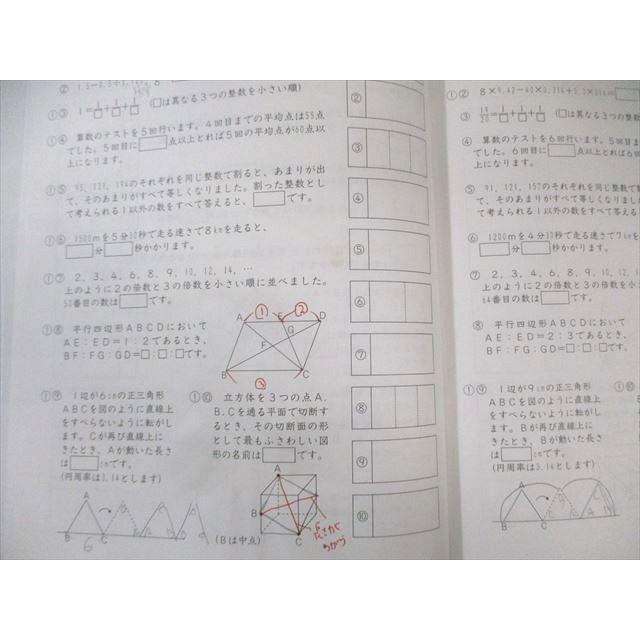 ①③ 1=1/□+1/□+1/□ (□は異なる3つの整数を小さい順)
①④ 算数のテストを5回行います。4回目までの平均点は55点
でした。5回目に□点以上とれば5回の平均点が60点以
上になります。
のそれぞれを同じ整数で割ると、あまりが出
て、そのあまりがすべて等しくなりました。割った整数とし
て考えられる1以外の数をすべて答えると、□です。
①⑥ 1500mを5分30秒で走る速さで8kmを走ると、
□分□秒かかります。
①⑦ 2, 3, 4, 6, 8, 9, 10, 12, 14, …
上のように2の倍数と3の倍数を小さい順に並べました。
50番目の数は□です。
①⑧ 平行四辺形ABCDにおいて
AE:ED=1:2であるとき、
BF:FG:GD=□:□:□です。
A ① E ② D
G
F
B ③ C
①⑨ 1辺が6cmの正三角形
ABCを図のように直線上
をすべらないように転がし
ます。Cが再び直線上に
きたとき、Aが動いた長さ
は□cmです。
(円周率は3.14とします)
A
B C
6
①⑩ 立方体を3つの点A、
B、Cを通る平面で切断す
るとき、その切断面の形
として最もふさわしい図
形の名前は□です。
A
B
C
(Bは中点)
②
③
④
⑤
⑥
⑦
⑧
⑨
⑩
①②
③ 19/20=1/□+1/□+1/□ (□は異なる3つの整数
④ 算数のテストを6回行います。5回
でした。6回目に□点以上とれば6回
上になります。
⑤ 91, 121, 157のそれぞれを同じ整数
て、そのあまりがすべて等しくなりま
て考えられる1以外の数をすべて
⑥ 1200mを4分30秒で走る速さで7km
□分□秒かかります。
⑦ 2, 3, 4, 6, 8, 9, 10, 12
上のように2の倍数と3の倍数を小
64番目の数は□です。
⑧ 平行四辺形ABCDにおいて
AE:ED=2:3であるとき、
BF:FG:GD=□:□:□です。
①⑨ 1辺が9cmの正三角形
ABCを図のように直線上
をすべらないように転がし
ます。Bが再び直線上に
きたとき、Bが動いた長さ
は□cmです。
(円周率は3.14とします)
A
B C
①⑩